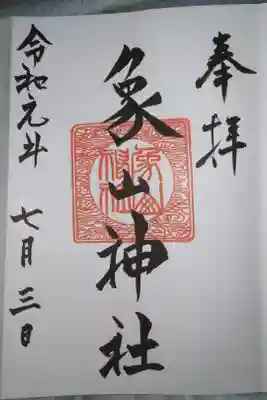 奉拝
象山神社
令和元年
七月三日